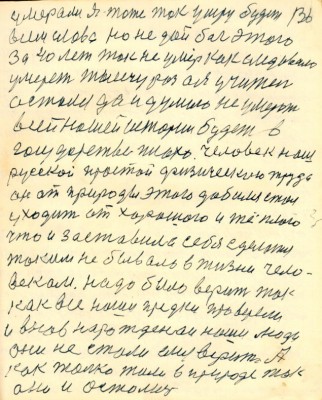 умерали я тоже так умру будет 136
всем слова но не дай бог этого
за 40 лет так не умер как следовало
умереть тысячу раз а я учител
остался да и думаю не умереть
всей нашей истории будет в
государстве плохо. Человек наш
русской простой физическую труда
он от природы этого добился стал
уходит от хорошого и тёплого
что и заставила себя сделать
таким не бывало в жизни чело-
веком. надо было верить так
как все наши предки провели
и вновь нарожденаи наши люди
они не стали ему верить. А
как только тали в природе так
оно и осталис